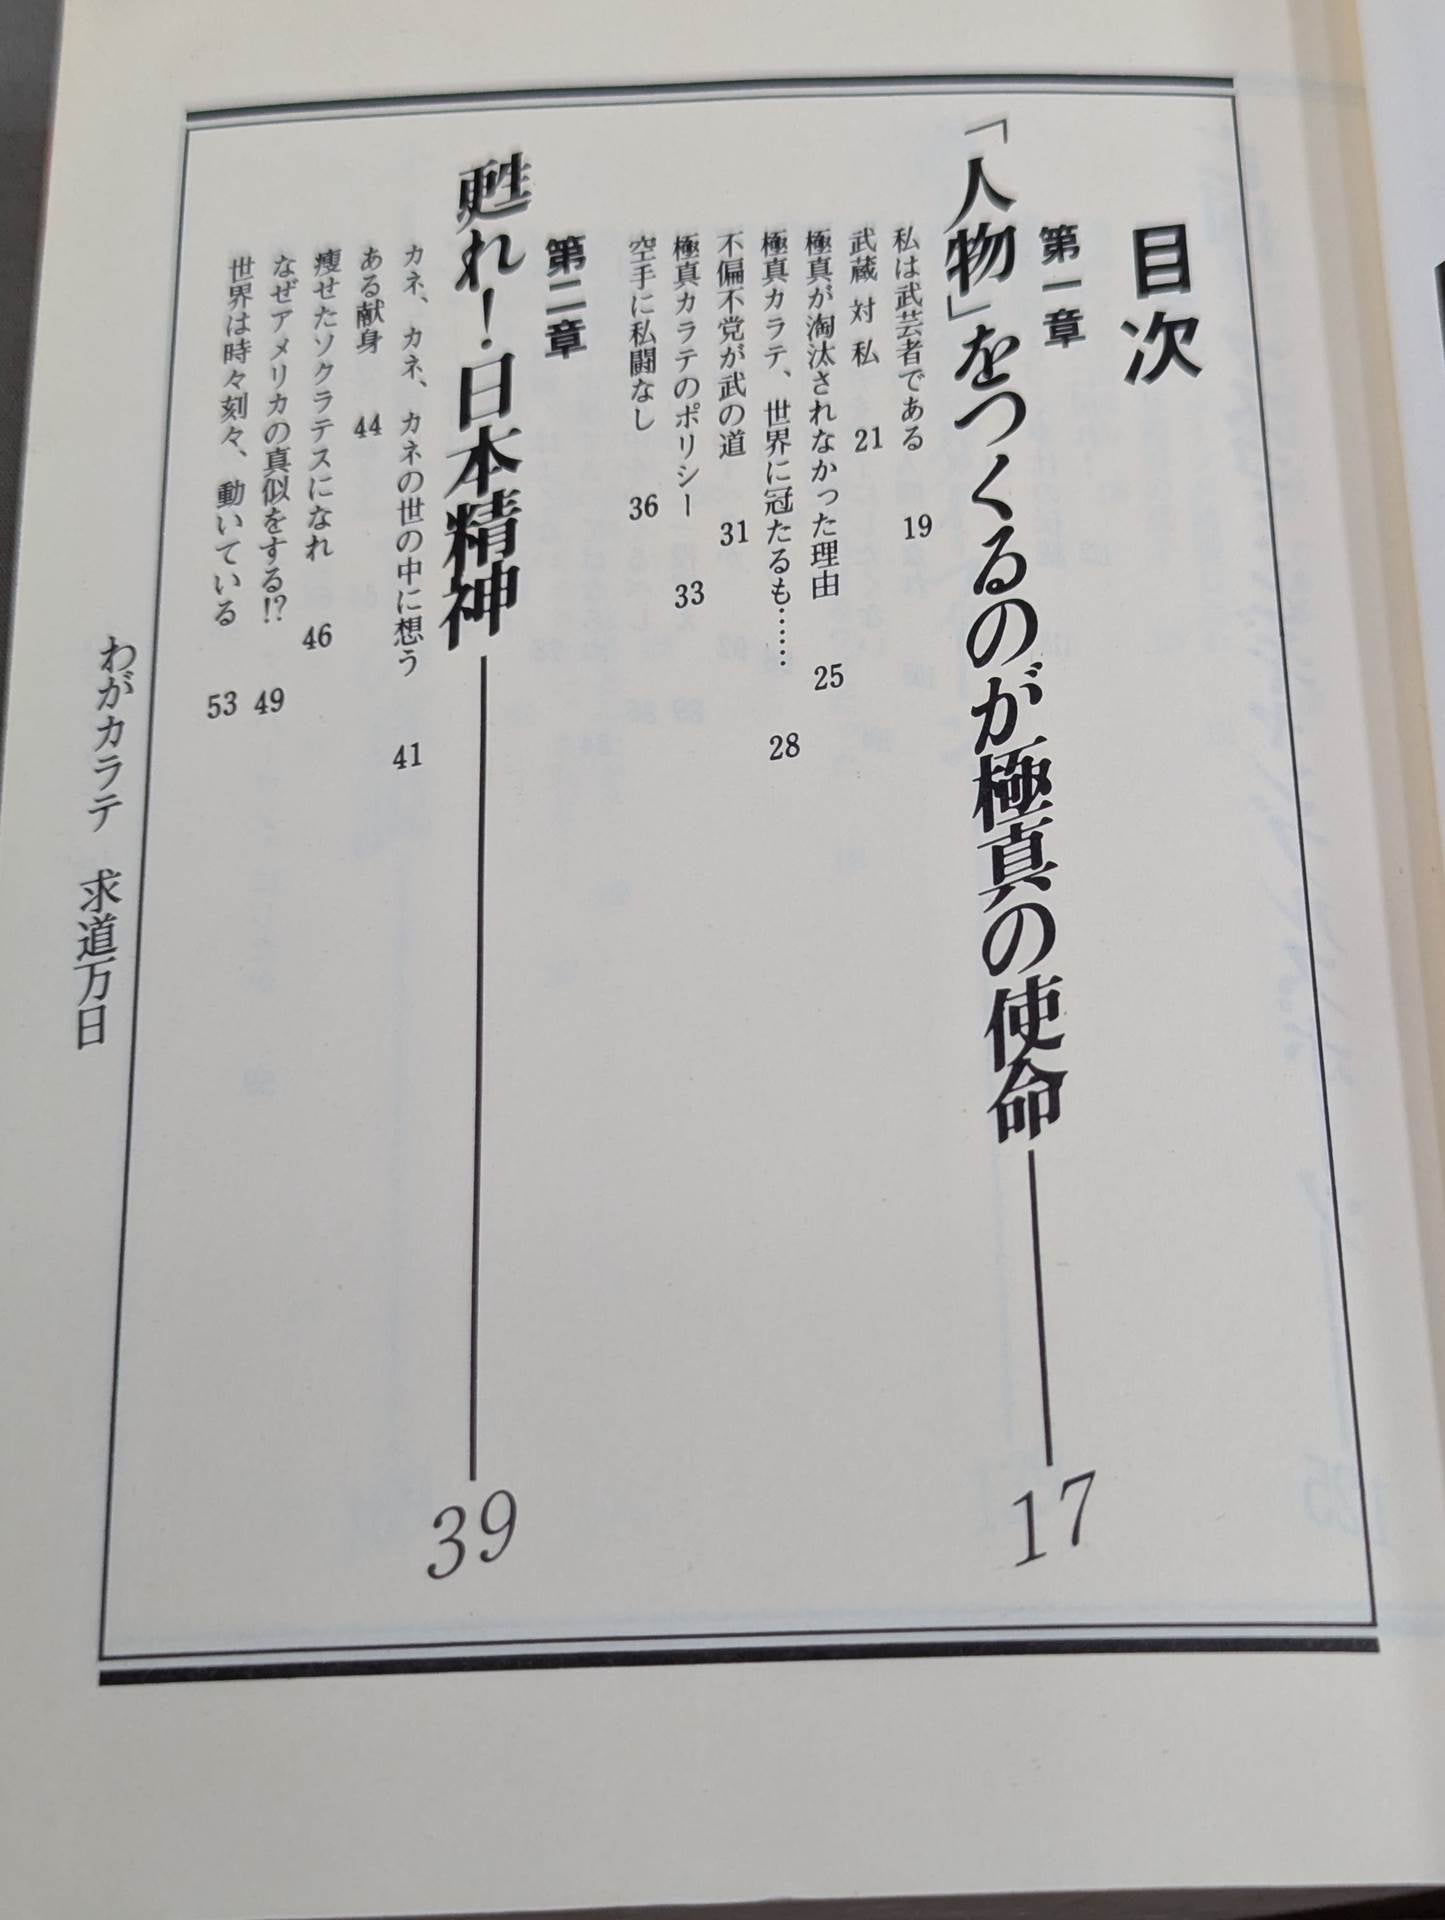 目次
第一章
「人物」をつくるのが極真の使命 17
私は武芸者である 19
武蔵 対 私 21
極真が淘汰されなかった理由 25
極真カラテ、世界に冠たるも…… 28
不偏不党が武の道 31
極真カラテのポリシー 33
空手に私闘なし 36
第二章
甦れ！日本精神 39
カネ、カネ、カネの世の中に想う 41
ある献身 44
痩せたソクラテスになれ 46
なぜアメリカの真似をする!? 49
世界は時々刻々、動いている 53
わがカラテ 求道万日